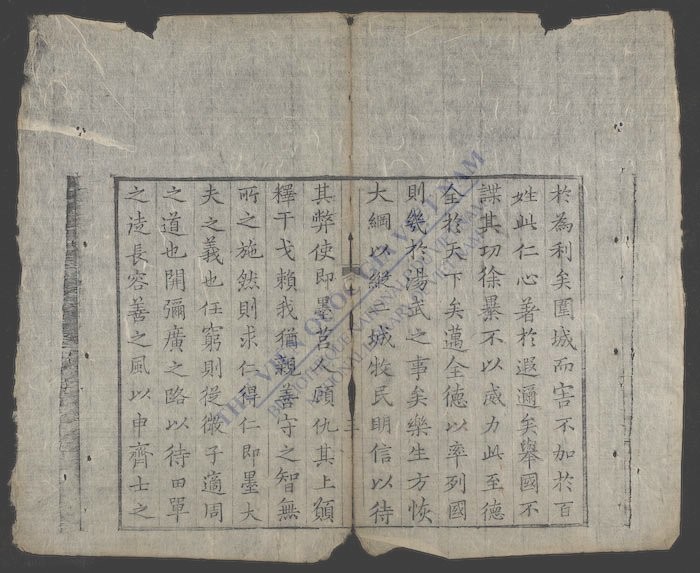 於為利矣圍城而害不加於百
姓此仁心著於遐邇矣舉國不
謀其功徐暴不以威力此至德
全於天下矣邁全德以率列國
則幾於湯武之事矣樂生方恢
大綱以縱二城牧民明信以待
三
其弊使即墨莒人顧仇其上願
釋干戈賴我猶親善守之智無
所之施然則求仁得仁即墨大
夫之義也任窮則從微子適周
之道也開彌廣之路以待田單
之徒長容善之風以申齊士之
THƯ VIỆN QUỐC GIA VIỆT NAM
BIBLIOTHEQUE NATIONALE DU VIETNAM
NATIONAL LIBRARY OF VIETNAM